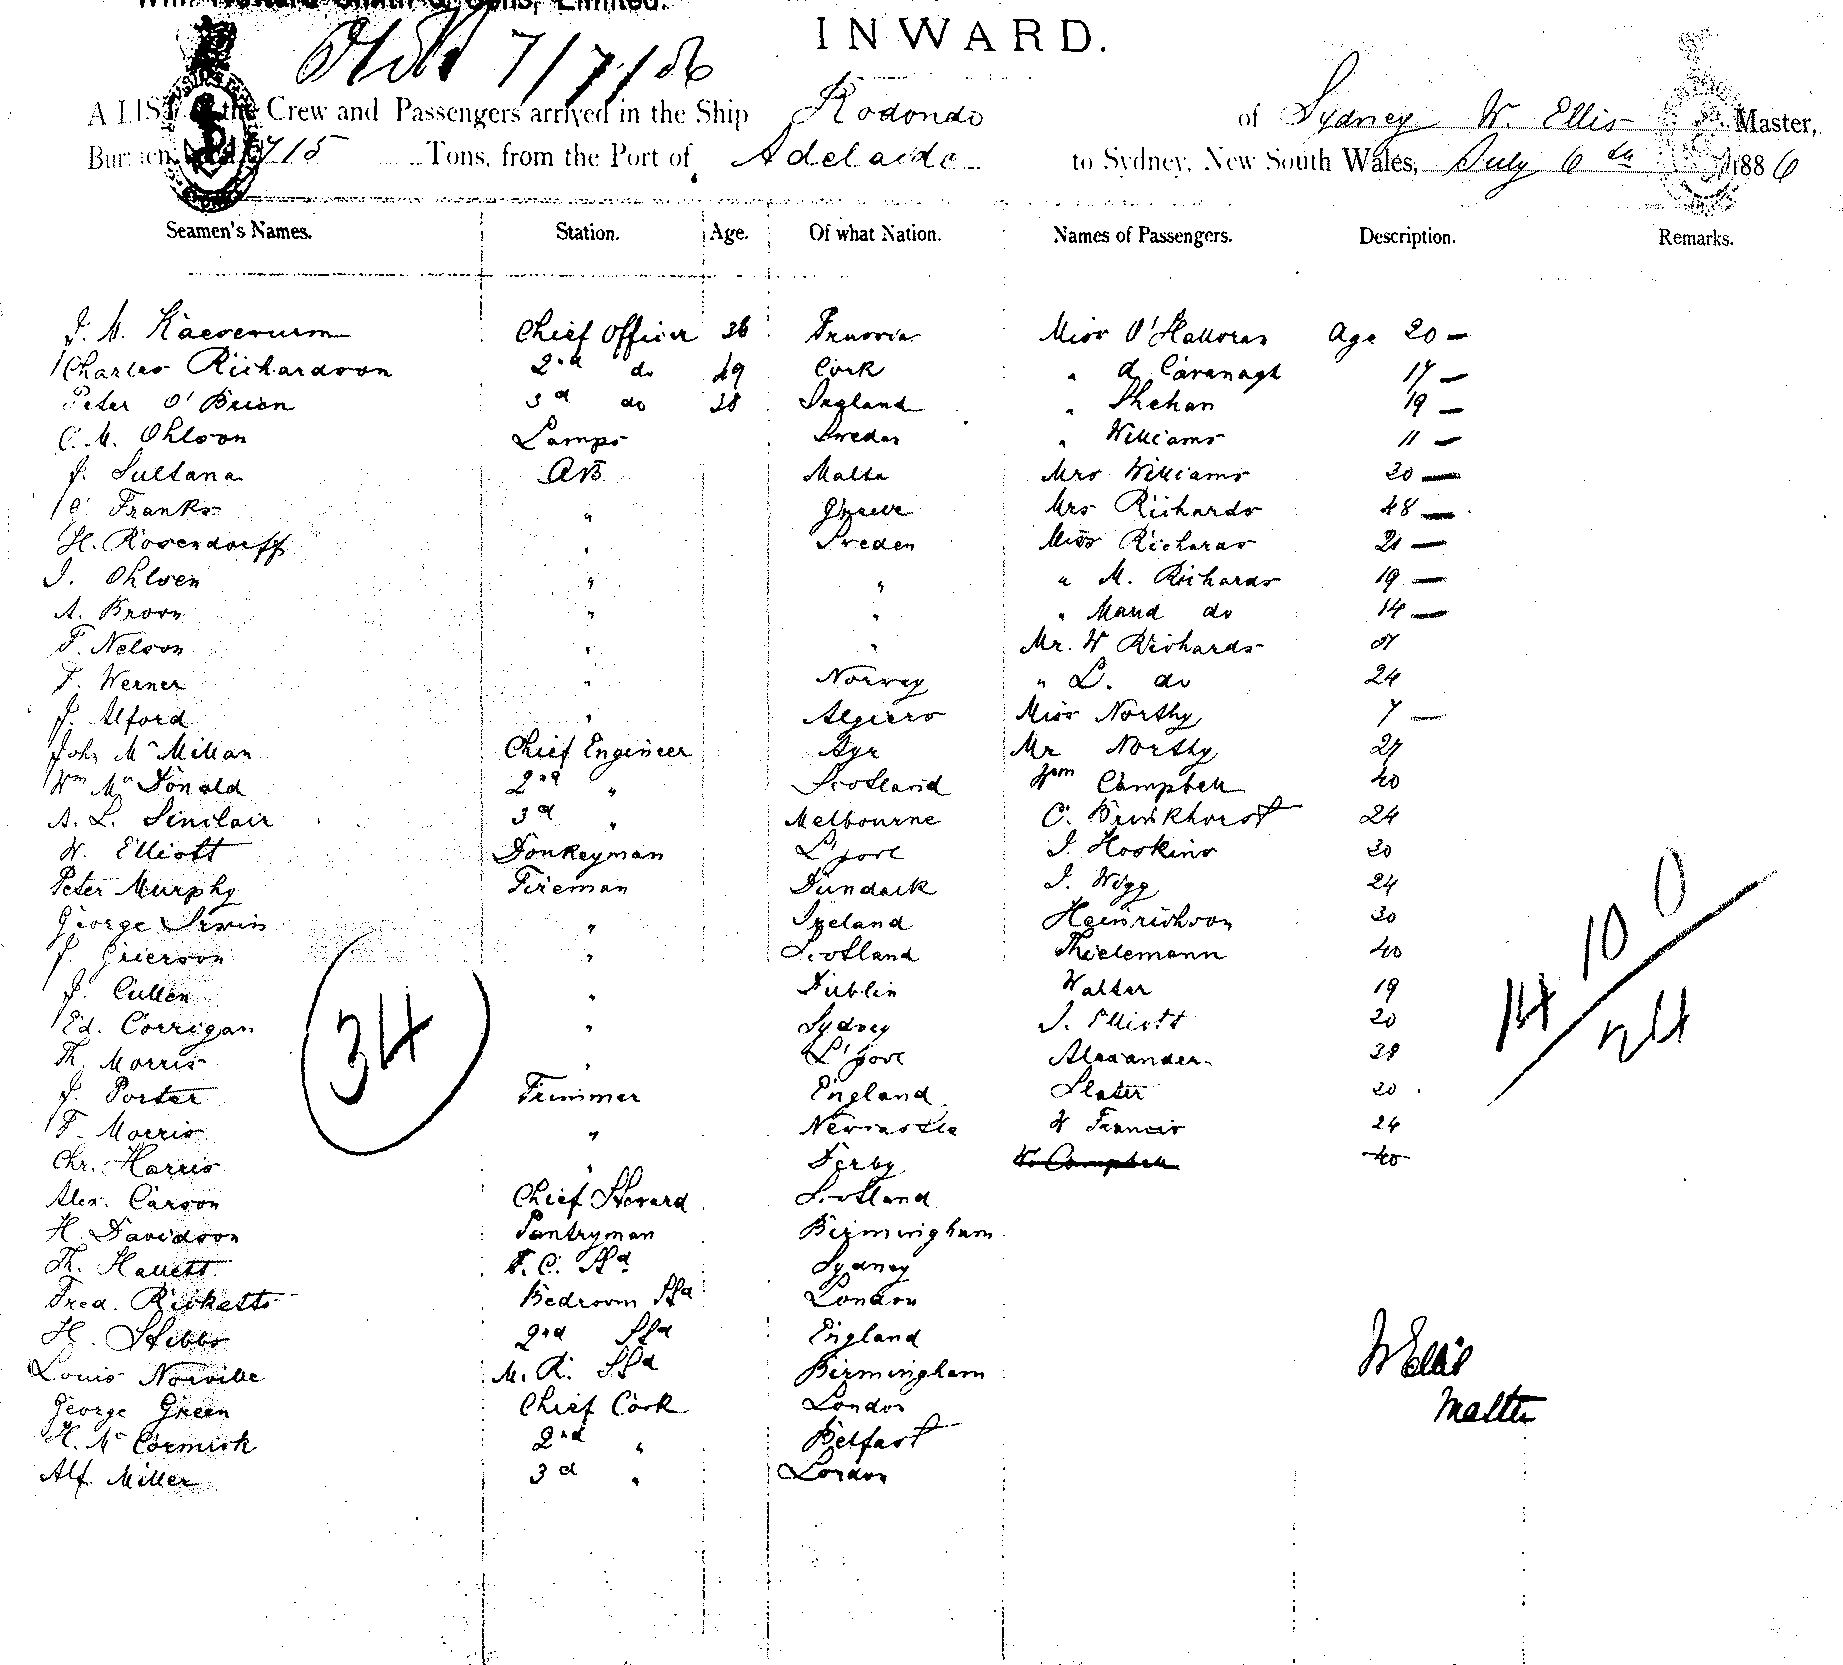 Wm. Howard Smith & Sons, Limited.
INWARD.
7/7/86
A LIST of the Crew and Passengers arrived in the Ship Rodondo of Sydney W. Ellis Master,
Burden 715 Tons, from the Port of Adelaide to Sydney, New South Wales, July 6th 1886
Seamen's Names. Station. Age. Of what Nation. Names of Passengers. Description. Remarks.
Chief Officer 36 Miss O'Halloran Age 20 —
Charles Richardson 2nd do 49 Cork " A Cavanagh 17 —
Peter O'Brien 3rd do 38 England " Shehan 19 —
C. M. Ohlson Lamps Sweden " Williams 11 —
J. Sultana AB Malta Mrs Williams 20 —
C. Franks " Greece Mrs Richards 48 —
H. Rosendorff " Sweden Miss Richards 21 —
J. Ohlsen " " " M. Richards 19 —
A. Broon " " " Maud do 14 —
F. Nelson " " Mr. W Richards
F. Werner " Norway " L. do 24
J. Alford " Algiers Miss Northy 7 —
John McMillan Chief Engineer Ayr Mr Northy 27
Wm McDonald 2nd " Scotland Wm Campbell 40
A. L. Sinclair 3rd " Melbourne C. Brinkhorst 24
W. Elliott Donkeyman L'pool J. Hoskins 30
Peter Murphy Fireman Dundalk J. Wigg 24
George Irwin " Ireland Heinrichson 30
J. Grierson " Scotland Thielemann 40
J. Cullen " Dublin Walter 19
Ed. Corrigan " Sydney J. Elliott 20
Th. Morris " L'pool Alexander 38
J. Porter Trimmer England Slater 20
F. Morris " Newcastle W Francis 24
Chr. Harris " Derby W. Campbell 40
Alex. Carson Chief Steward Scotland
H. Davidson Pantryman Birmingham
Th. Hallett F. C. Std Sydney
Fred. Ricketts Bedroom Std London
H. Stibbs 2nd Std England
Louis Norville M. R. Std Birmingham
George Green Chief Cook London
H. McCormick 2nd " Belfast
Alf Miller 3rd " London
34
14 10 0
24
W Ellis
Master